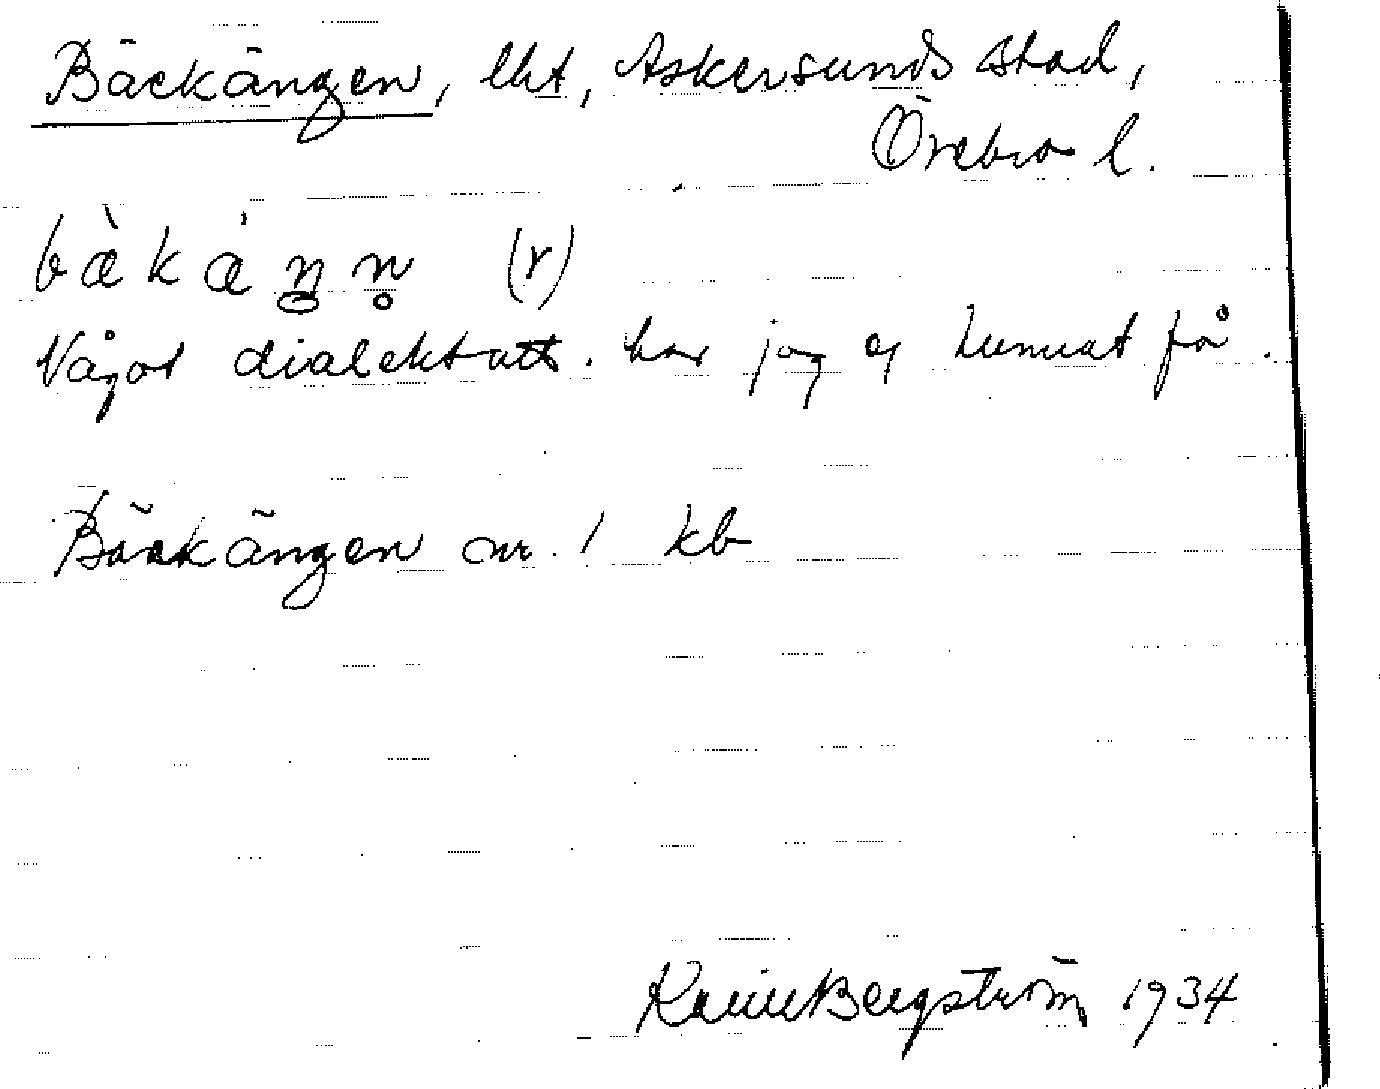 Bäckängen, lht, Askersunds stad,
Örebro l.
bæ̀kæ̀ŋn̥ (r)
Något dialektutt. har jag ej kunnat få.
Bäckängen nr. 1 kb
Karin Bergström 1934